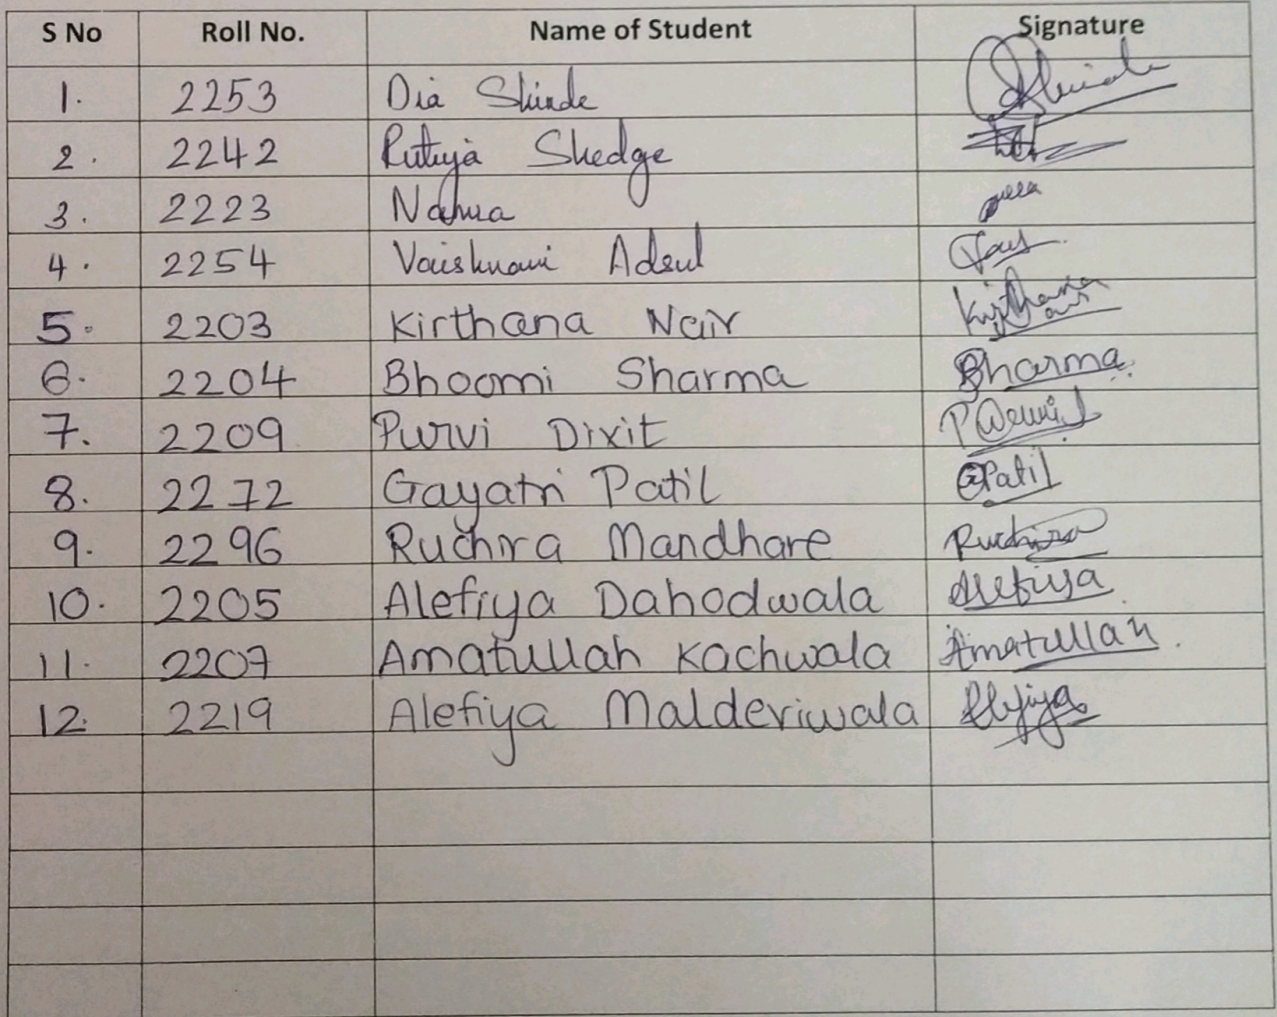 S No Roll No. Name of Student Signature
1. 2253 Dia Shinde
2. 2242 Rutuja Shedge
3. 2223
4. 2254 Vaishnavi Adsul
5. 2203 Kirthana Nair Kirthana
6. 2204 Bhoomi Sharma Bharma
7. 2209 Purvi Dixit
8. 2272 Gayatri Patil GPatil
9. 2296 Ruchira Mandhare Ruchira
10. 2205 Alefiya Dahodwala Alefiya
11. 2207 Amatullah Kachwala Amatullah
12. 2219 Alefiya Malderiwala Alefiya